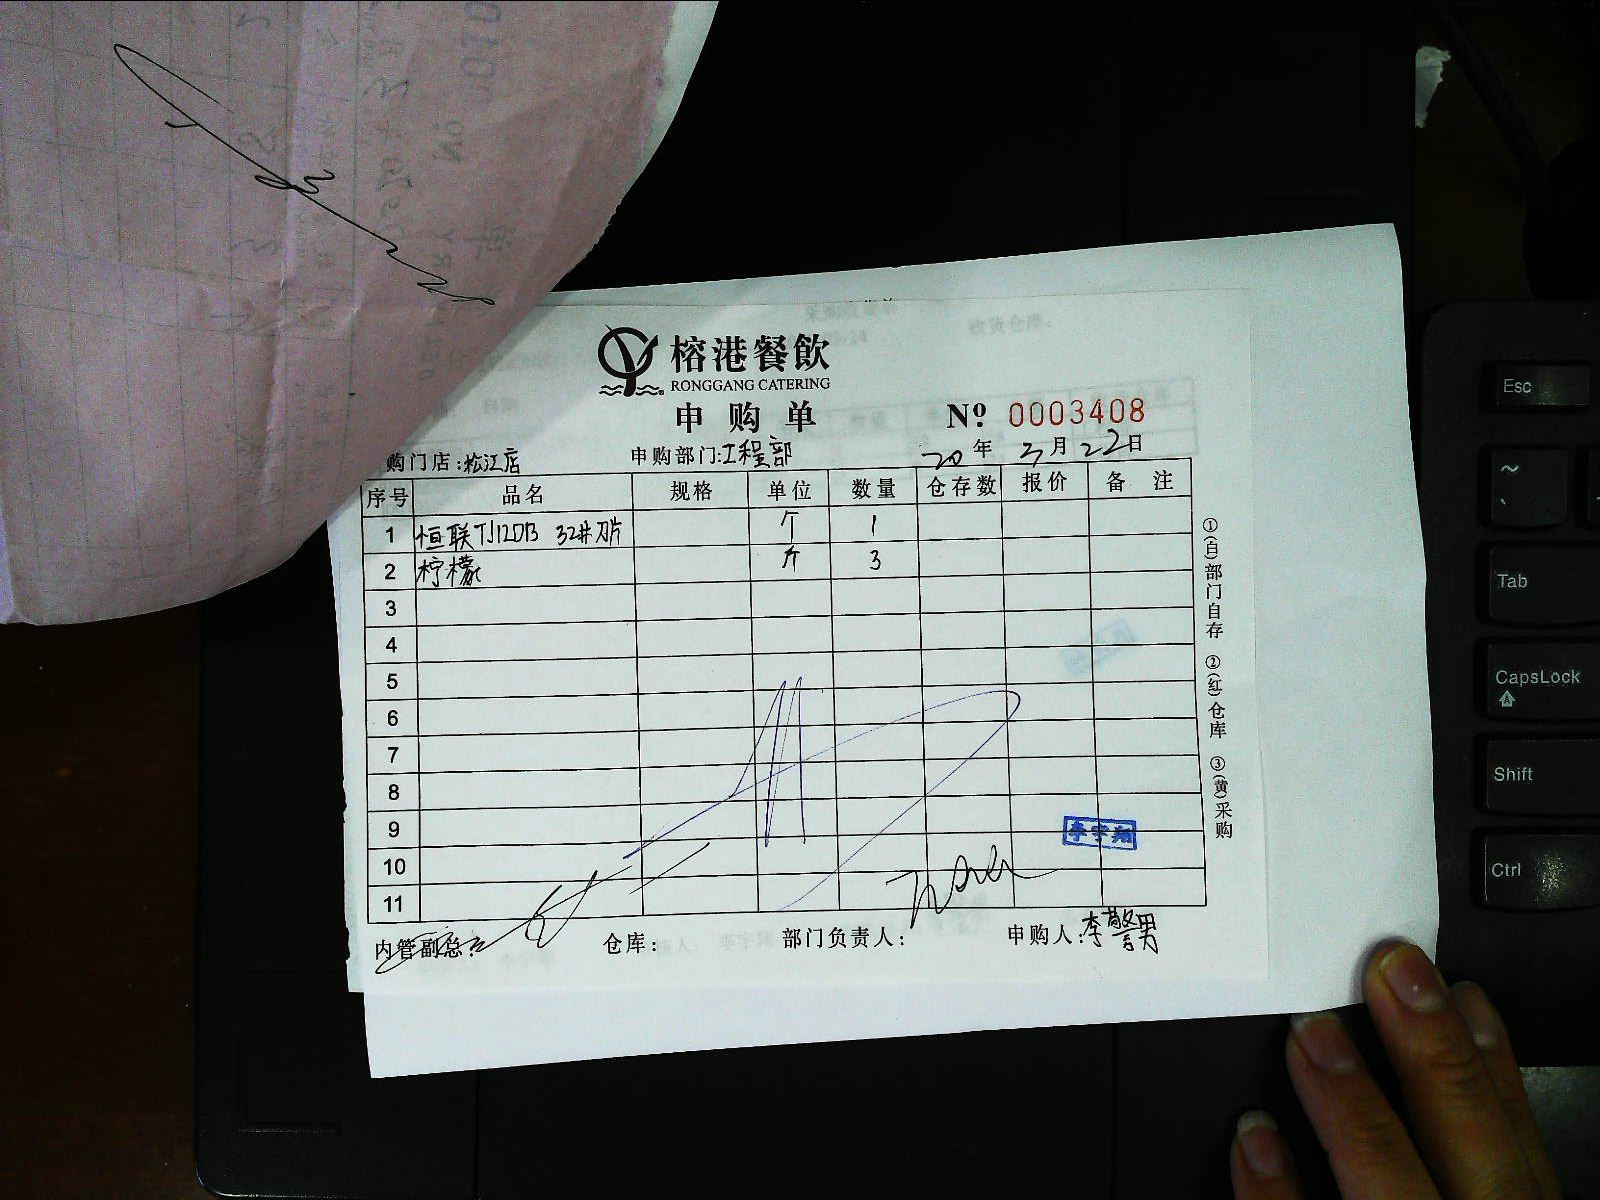 榕港餐飲
RONGGANG CATERING
申购单 Nº 0003408
购门店:松江店 申购部门:工程部 20年3月22日
序号 品名 规格 单位 数量 仓存数 报价 备注
1 恒联TJ12DB 32#刀片 个 1
2 柠檬 斤 3
3
4
5
6
7
8
9
10
11
李宇翔
内管副总: 仓库: 部门负责人: 申购人:李警男
①(白)部门自存 ②(红)仓库 ③(黄)采购
Esc
~
Tab
CapsLock
Shift
Ctrl